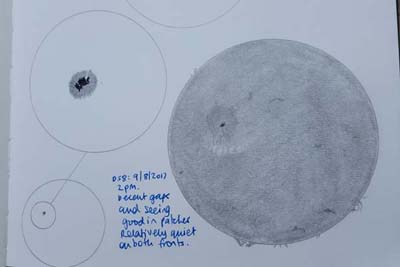 DS8: 9/8/2017
2pm.
Decent gaps
and seeing
good in patches
Relatively quiet
on both fronts.